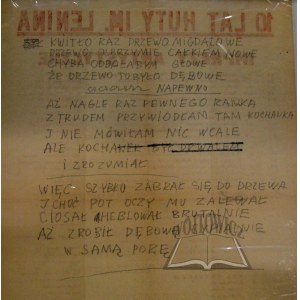 10 LAT HUTY IM. LENINA
KWITŁO RAZ DRZEWO MIGDAŁOWE
DRZEWO OLBRZYMIE CAŁKIEM NOWE
CHYBA ODDAŁABYM GŁOWĘ
ŻE DRZEWO TO BYŁO DĘBOWE
NAPEWNO
AŻ NAGLE RAZ PEWNEGO RANKA
Z TRUDEM PRZYWIODŁAM TAM KOCHANKA
I NIE MÓWIŁAM NIC WCALE
ALE KOCHANEK BYŁ DRWALEM
I ZROZUMIAŁ
WIĘC SZYBKO ZABRAŁ SIĘ DO DRZEWA
I CHOĆ POT OCZY MU ZALEWAŁ
CIOSAŁ I HEBLOWAŁ BRUTALNIE
AŻ ZROBIŁ DĘBOWĄ
W SAMĄ PORĘ